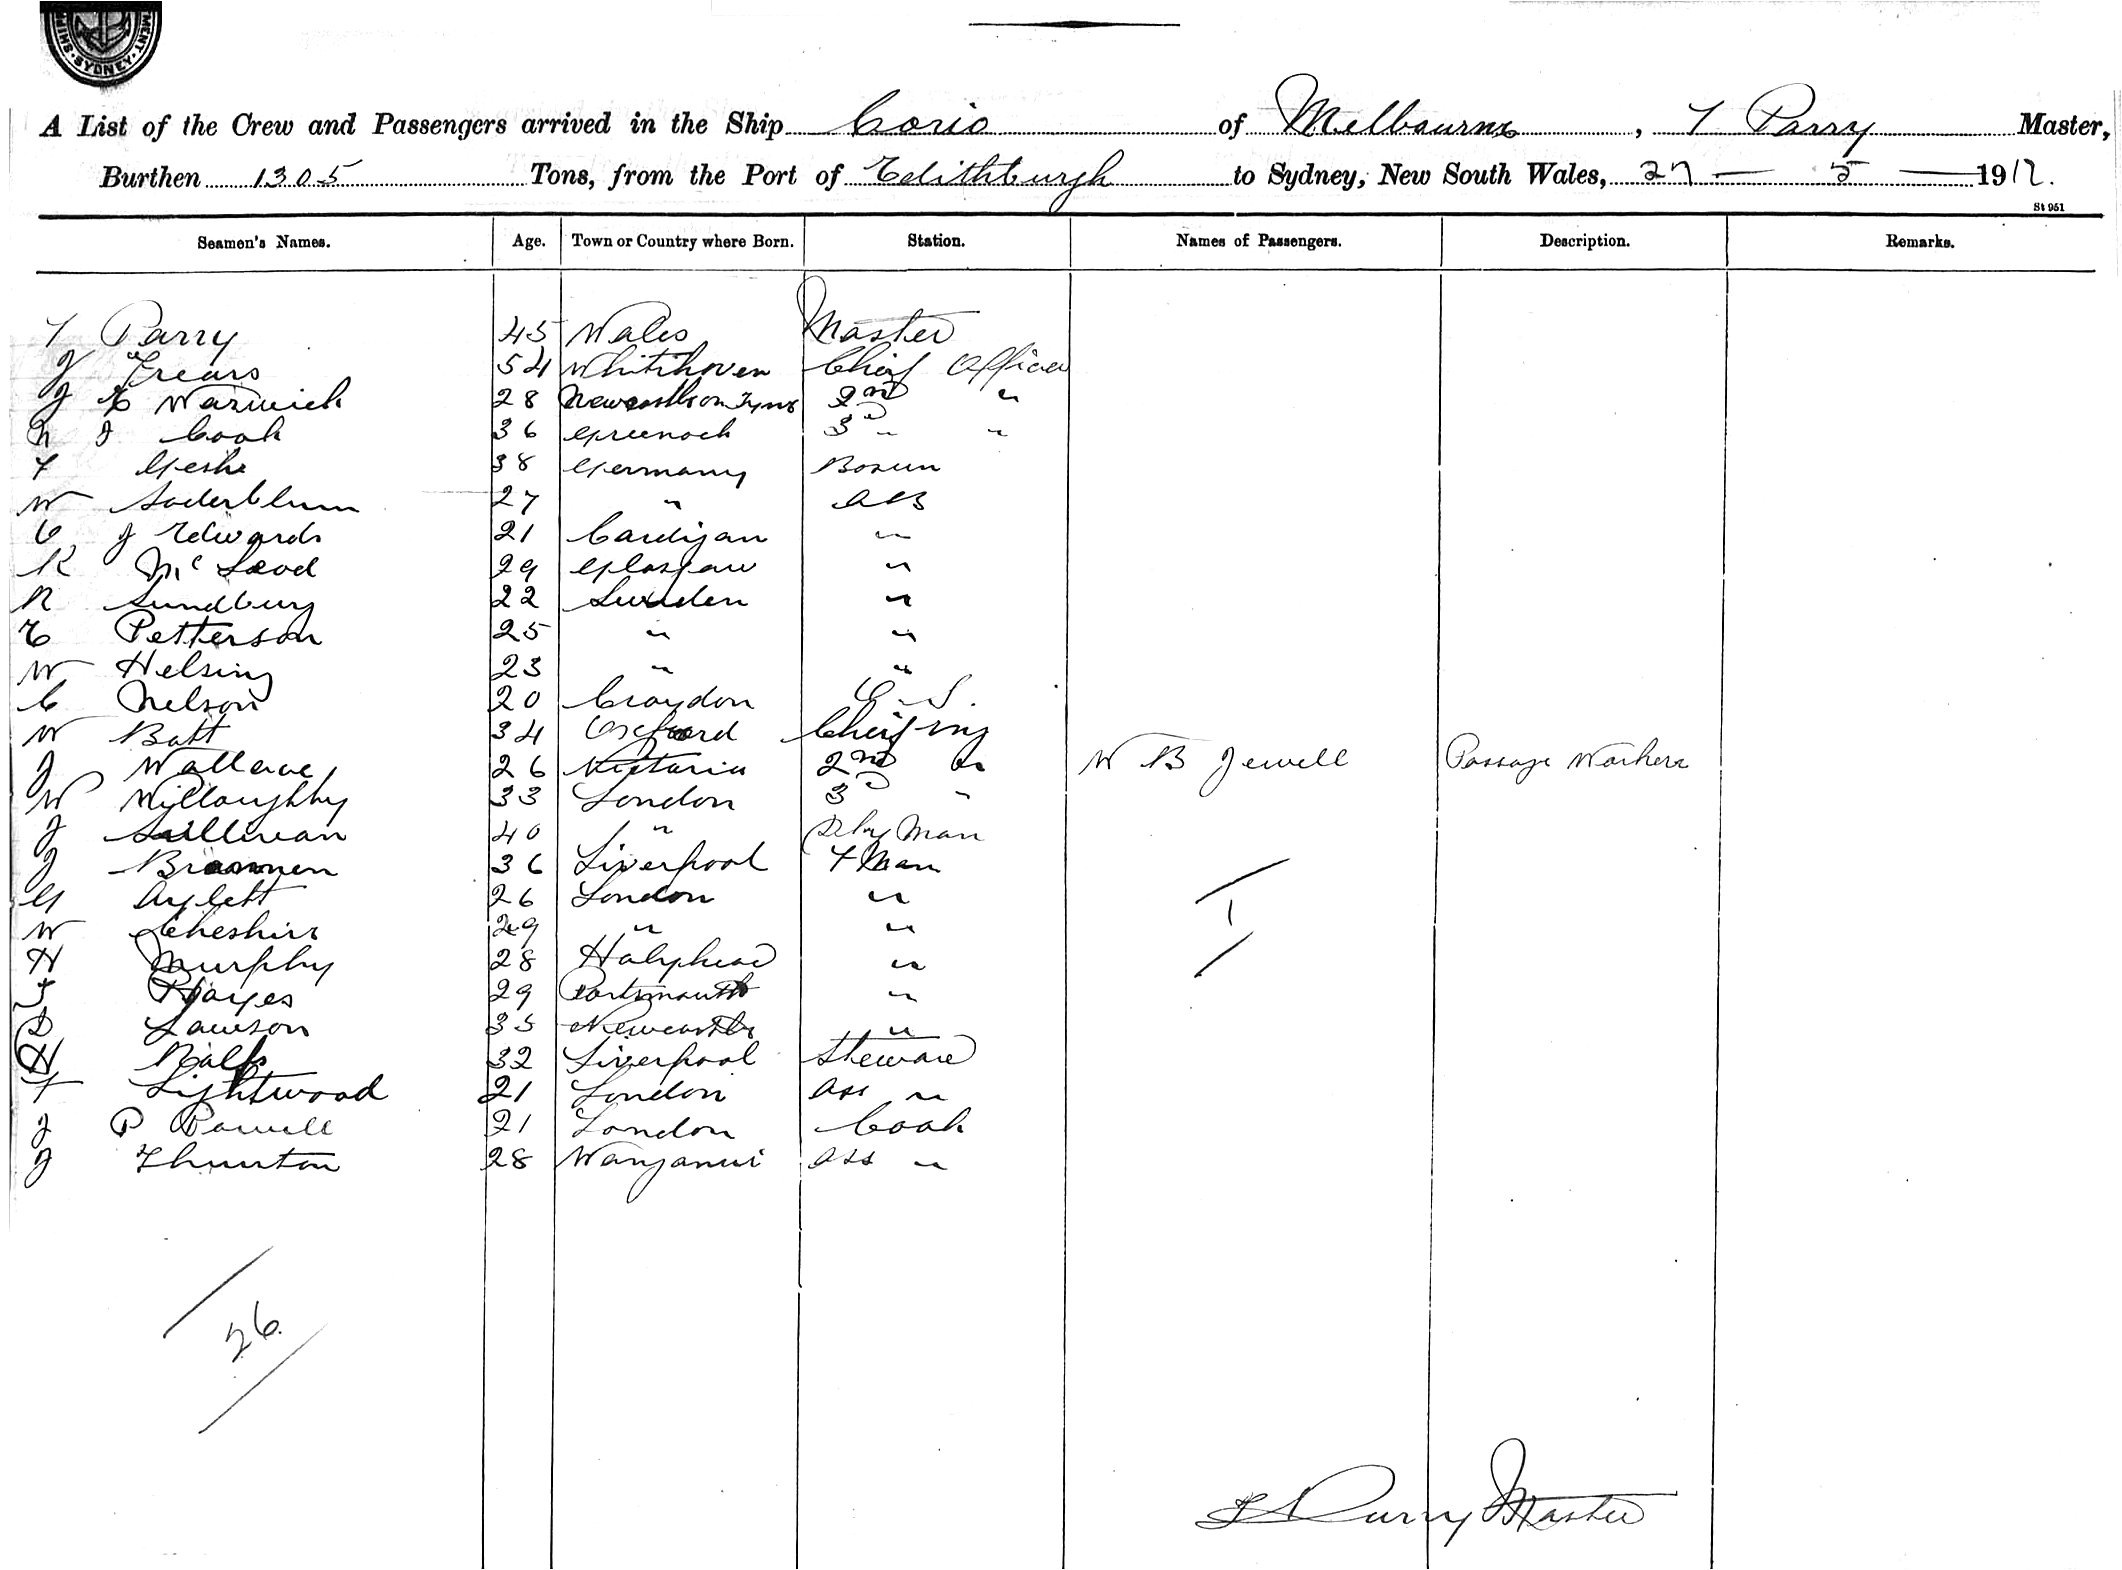 SHIPP MENT · SYDNEY ·
A List of the Crew and Passengers arrived in the Ship Corio of Melbourne, T Parry Master,
Burthen 1305 Tons, from the Port of Edithburgh to Sydney, New South Wales, 27 - 5 - 1912.
St 951
Seamen's Names. Age. Town or Country where Born. Station. Names of Passengers. Description. Remarks.
T Parry 45 Wales Master
J Frears 54 Whitihoven Chief Officer
J E Warwick 28 Newcastle on Tyne 2nd "
N J Cook 36 Greenock 3 " "
F Geshe 38 Germany Bosun
W Soderblum 27 " AB
C J Edwards 21 Cardigan "
K McLeod 29 Glasgow "
R Sundburg 22 Sweden "
E Petterson 25 " "
W Helsing 23 " "
C Nelson 20 Croydon O.S.
W Batt 34 Oxford Chief Eng
J Wallace 26 Victoria 2nd " W B Jewell Passage Workers
W Willoughby 33 London 3 "
J Sullivan 40 " Dky Man
J Brannen 36 Liverpool F Man
G Aylett 26 London "
W Cheshire 29 " "
H Murphy 28 Holyhead "
F Hayes 29 Portsmouth "
D Lawson 35 Newcastle "
H Ralfs 32 Liverpool Steward
F Lightwood 21 London Ass "
J P Powell 21 London Cook
J Thurston 28 Wanganui Ass "
1
26
T Parry Master